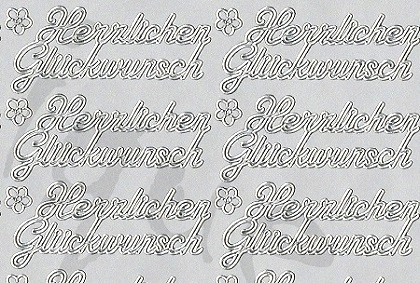 Herzlichen Herzlichen
Glückwunsch Glückwunsch
Herzlichen Herzlichen
Glückwunsch Glückwunsch
Herzlichen Herzlichen
Glückwunsch Glückwunsch